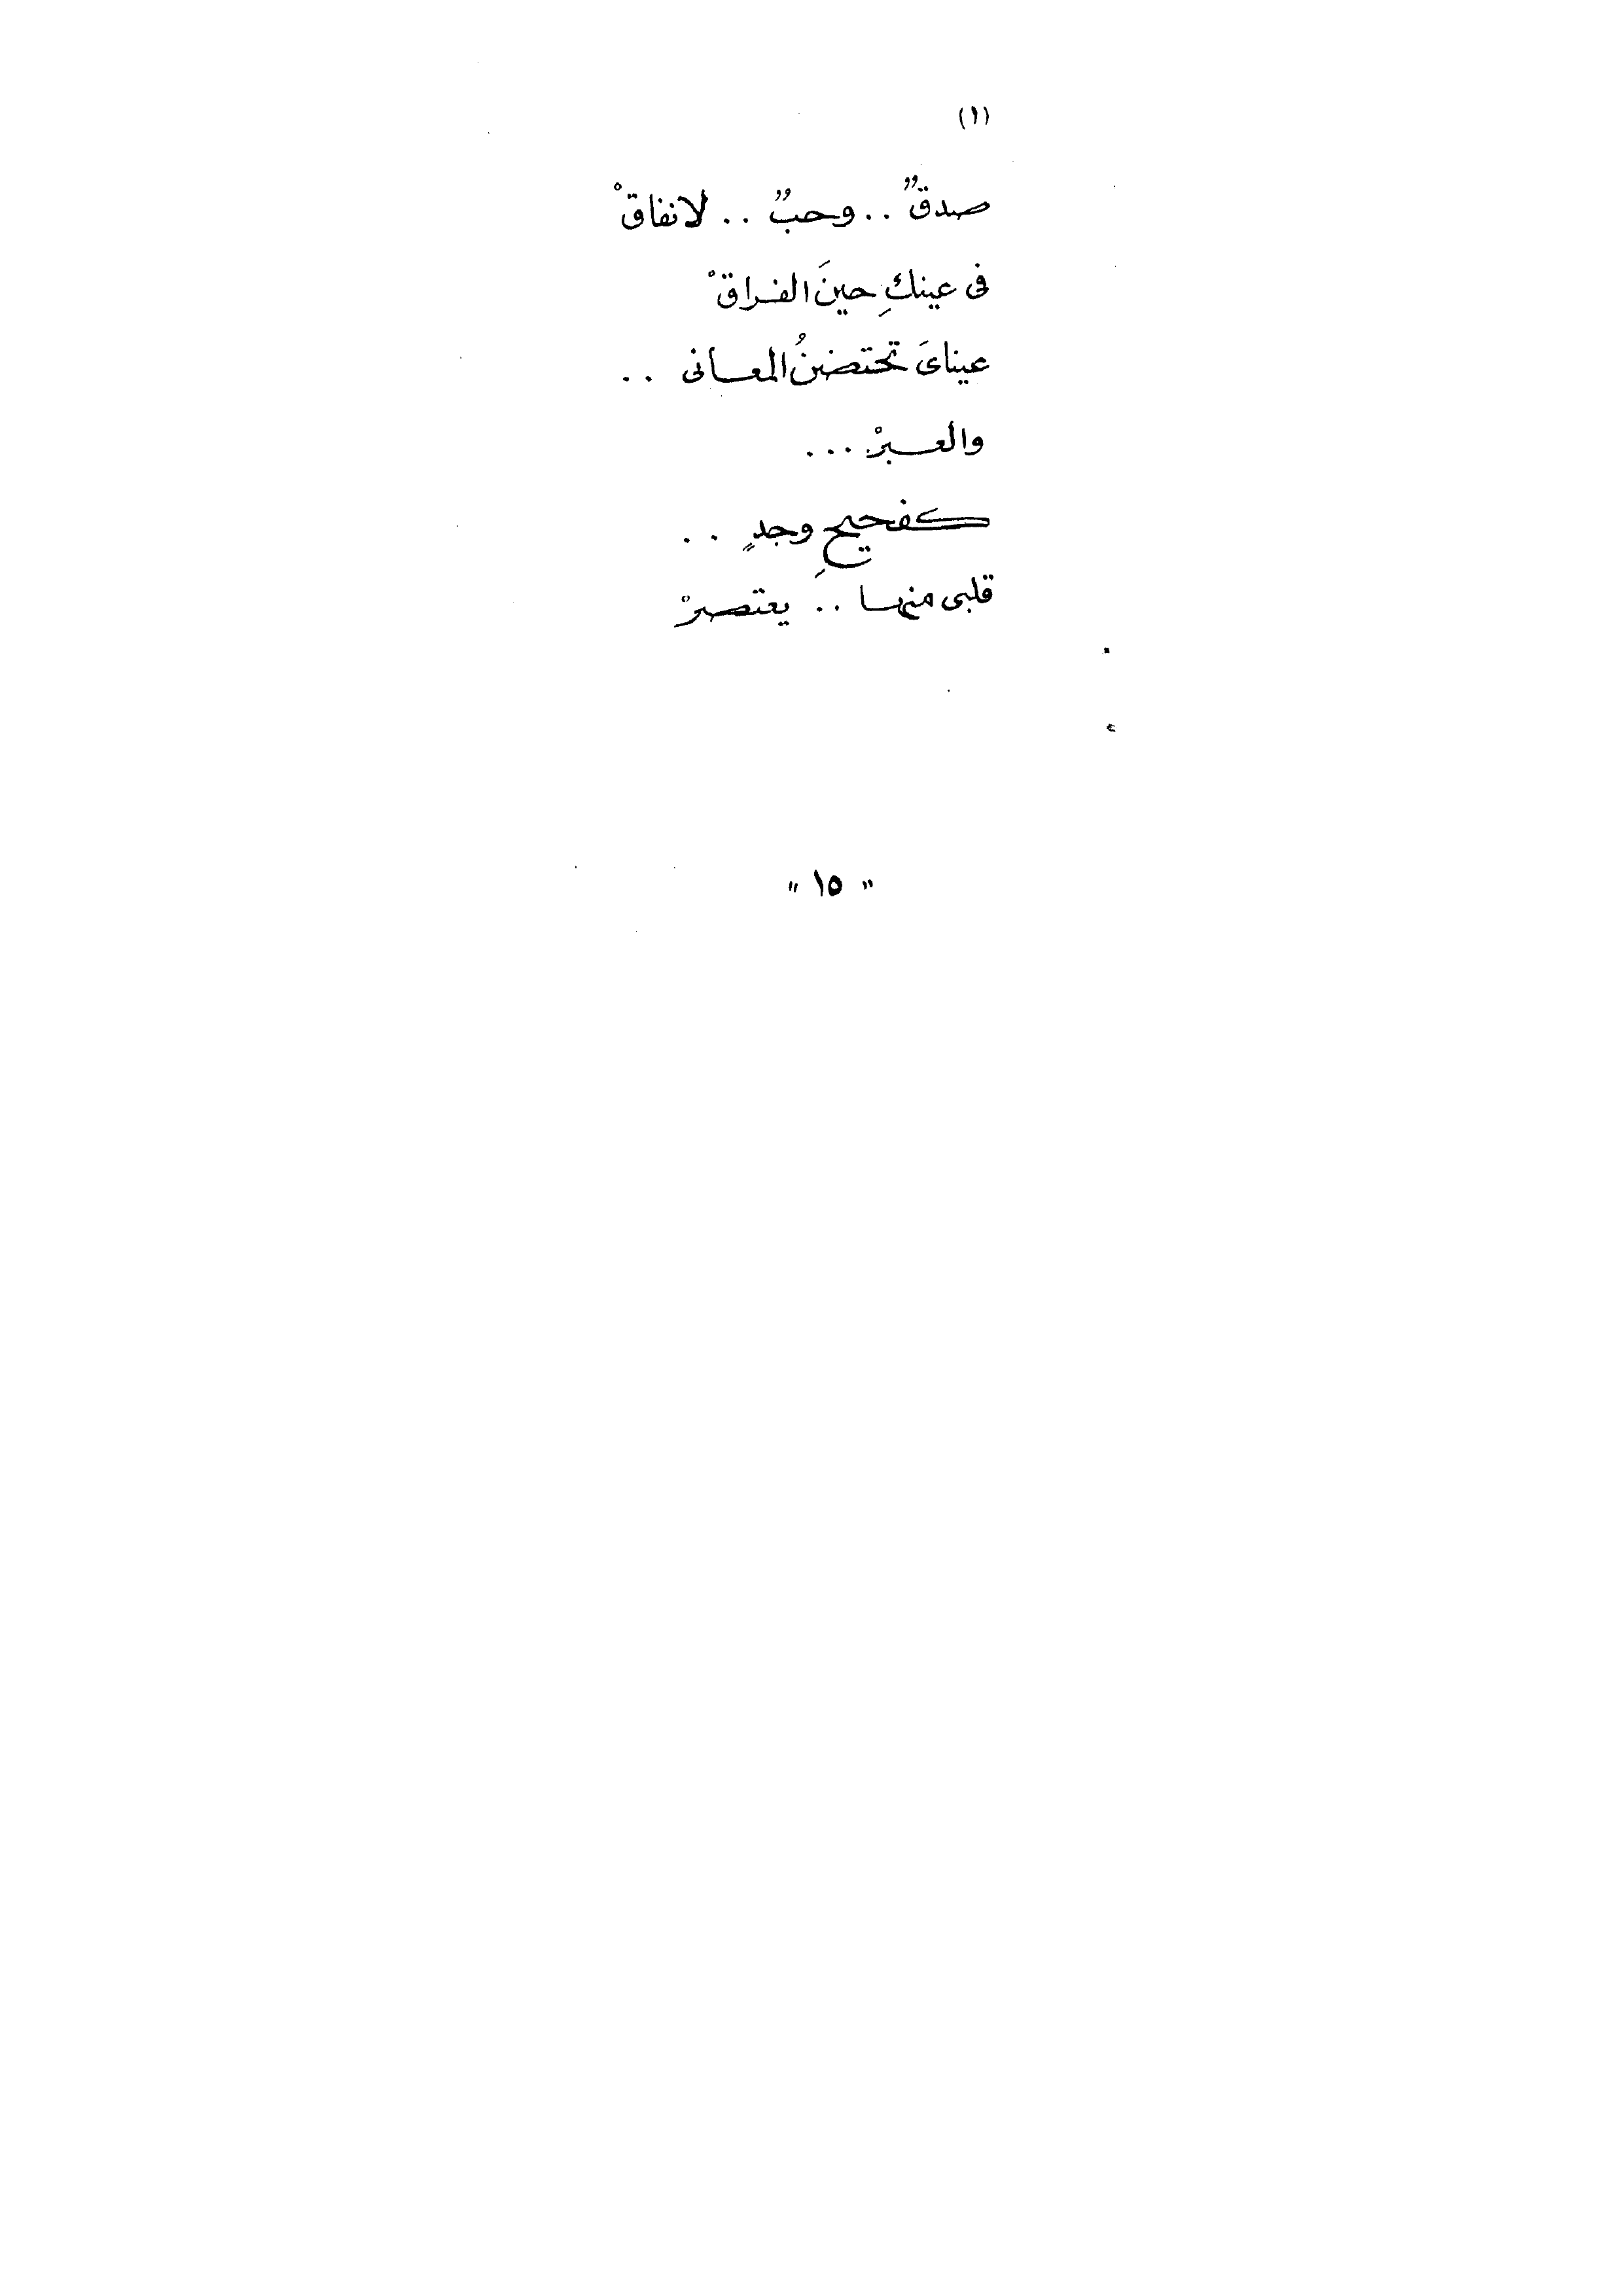 (١)
صدقٌ .. وحبٌ .. لا نفاقْ
فى عينكِ حينَ الفراقْ
عيناىَ تحتضنُ المعانى ..
والعبرْ ...
كفحيحِ وجدٍ ..
قلبى منها .. يعتصرْ
" ١٥ "